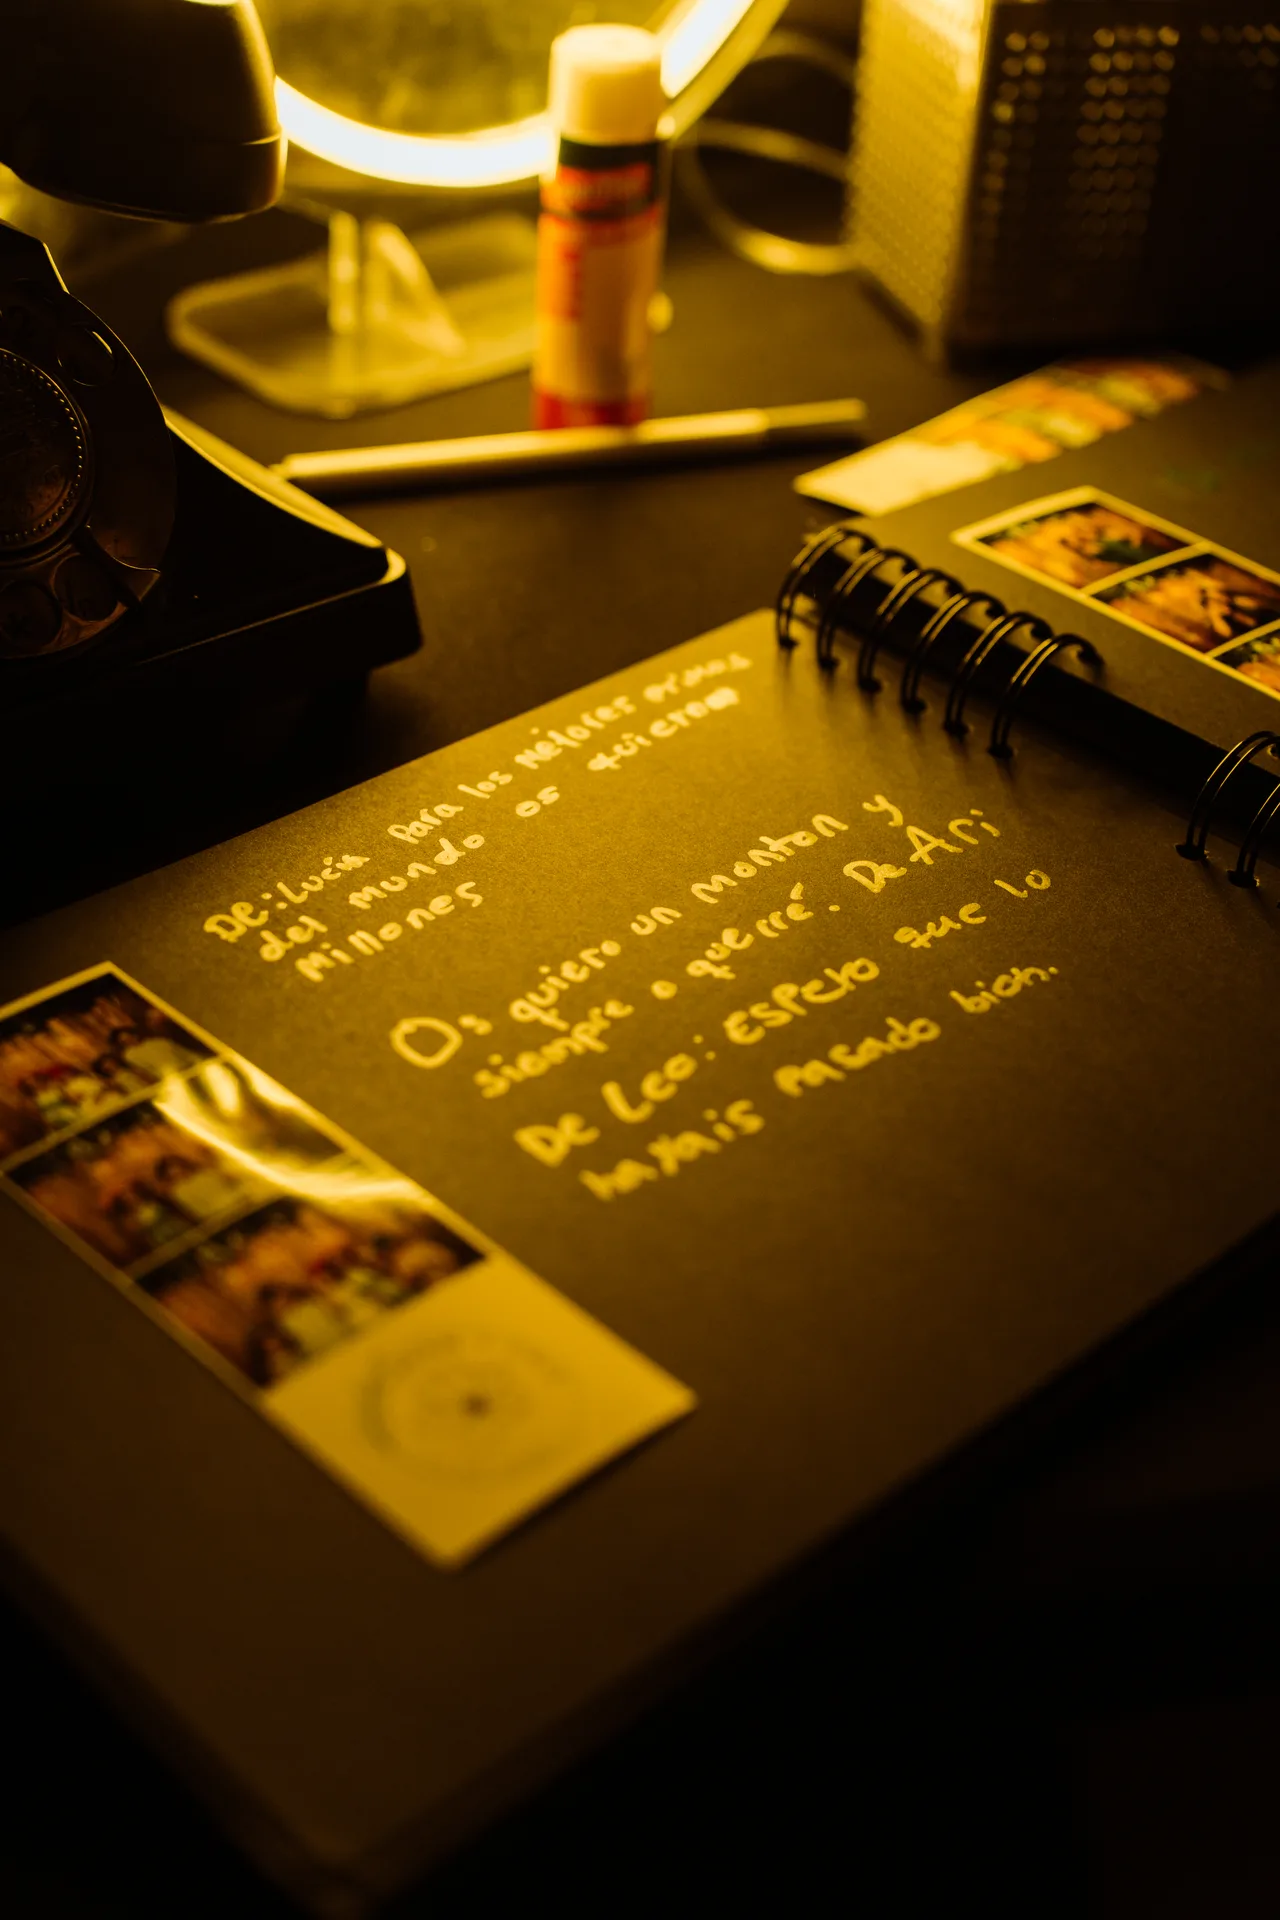 DE: Lucía Para los Mejores primos
del mundo os quieren
Millones
Os quiero un montón y
siempre o querré. De Ari
De Leo: ESPERO que lo
hayais pasado bien.